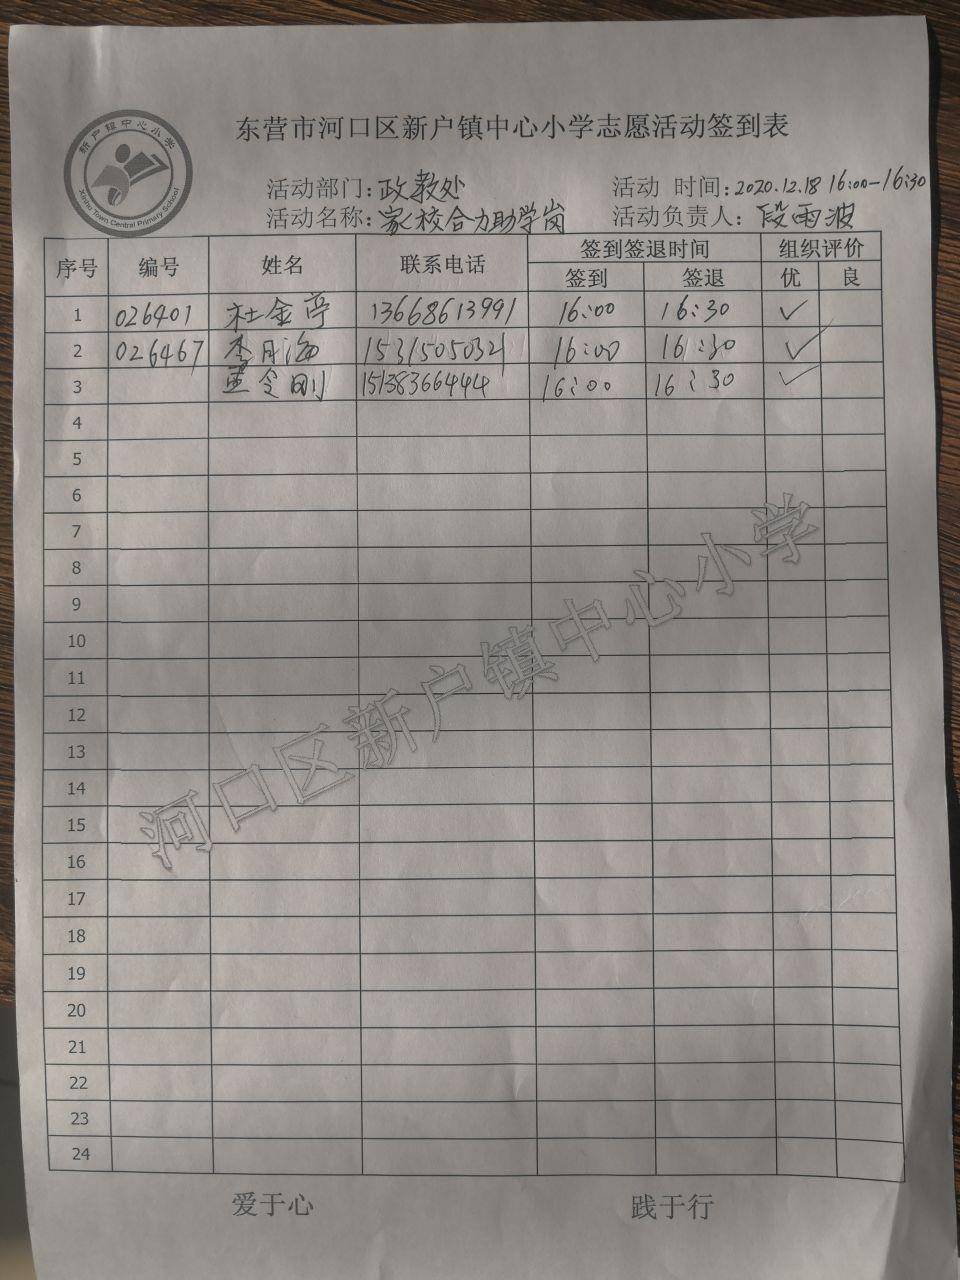 新户镇中心小学
Xinhu Town Central Primary School
东营市河口区新户镇中心小学志愿活动签到表
活动部门:政教处 活动 时间:2020.12.18 16:00-16:30
活动名称:家校合力助学岗 活动负责人:段雨波
序号 编号 姓名 联系电话 签到签退时间 组织评价
签到 签退 优 良
1 026401 杜金亭 13668613991 16:00 16:30 ✓
2 026467 李月海 15315050321 16:00 16:30 ✓
3 孟令刚 15138366444 16:00 16:30 ✓
4
5
6
7
8
9
10
11
12
13
14
15
16
17
18
19
20
21
22
23
24
河口区新户镇中心小学
爱于心 践于行